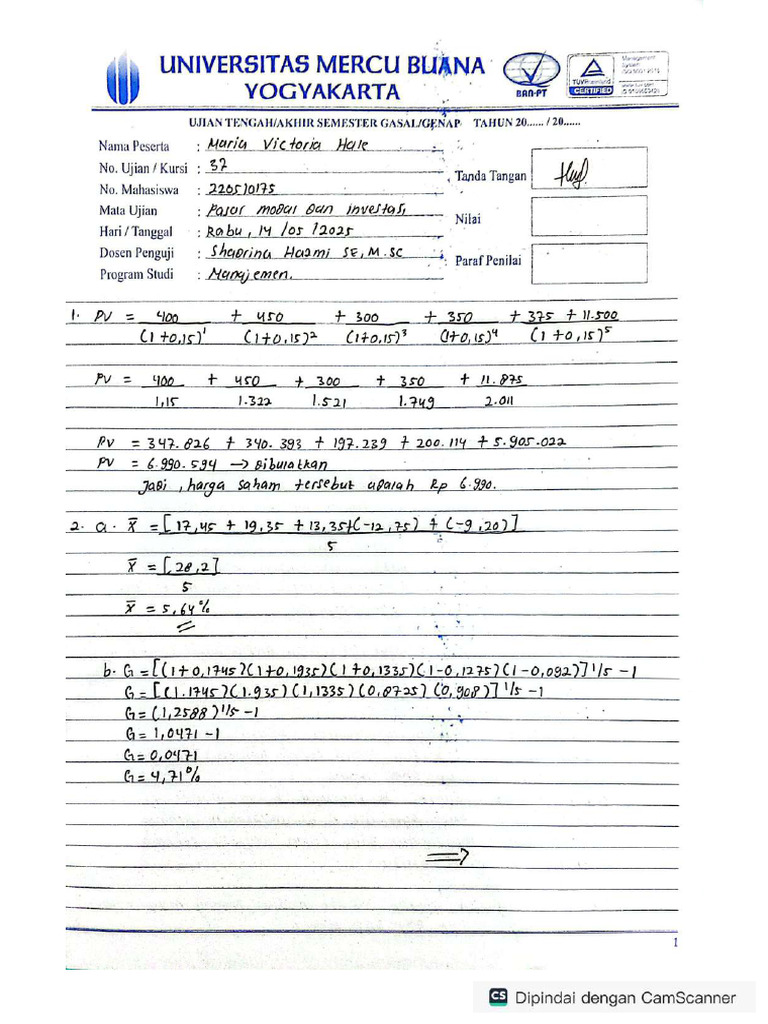 UNIVERSITAS MERCU BUANA
YOGYAKARTA
BAN-PT
TUVRheinland
CERTIFIED
Management
System
ISO 9001:2015
UJIAN TENGAH/AKHIR SEMESTER GASAL/GENAP TAHUN 20...... / 20......
Nama Peserta : Maria Victoria Hale
No. Ujian / Kursi : 37
No. Mahasiswa : 220510175
Mata Ujian : Pasar modal dan investasi
Hari / Tanggal : Rabu, 14 / 05 / 2025
Dosen Penguji : Shadrina Hazmi SE, M.SC
Program Studi : Manajemen.
Tanda Tangan
Nilai
Paraf Penilai
1. PV = 400 + 450 + 300 + 350 + 375 + 11.500
(1+0,15)¹ (1+0,15)² (1+0,15)³ (1+0,15)⁴ (1+0,15)⁵
PV = 400 + 450 + 300 + 350 + 11.875
1,15 1.322 1.521 1.749 2.011
PV = 347.826 + 340.393 + 197.239 + 200.114 + 5.905.022
PV = 6.990.594 → Dibulatkan
Jadi, harga saham tersebut adalah Rp 6.990.
2. a. x̄ = [17,45 + 19,35 + 13,35+(-12,75) + (-9,20)]
5
x̄ = [28,2]
5
x̄ = 5,64%
b. G = [(1+0,1745)(1+0,1935)(1+0,1335)(1-0,1275)(1-0,092)]1/5 -1
G = [(1.1745)(1.935)(1,1335)(0,8725)(0,908)]1/5 -1
G = (1,2588)1/5 -1
G = 1,0471 -1
G = 0,0471
G = 4,71%
⇒
1
CS Dipindai dengan CamScanner